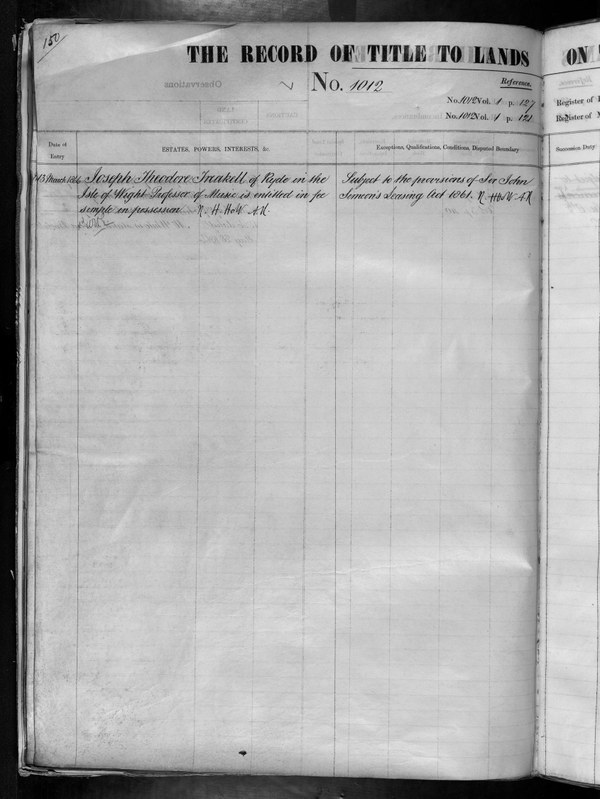 150
THE RECORD OF TITLE TO LANDS ON
No. 1012
Reference.
No. 1012 Vol. 1 p. 127
No. 1012 Vol. 1 p. 121
Register of
Register of
Date of
Entry
ESTATES, POWERS, INTERESTS, &c.
Exceptions, Qualifications, Conditions, Disputed Boundary
Succession Duty
Observations
March 1864 Joseph Theodore Trakell of Ryde in the
Isle of Wight Professor of Music is entitled in fee
simple in possession. R. H. Holt A.K.
Subject to the provisions of Sir John
Simeon's Leasing Act 1861. R. H Holt A.K